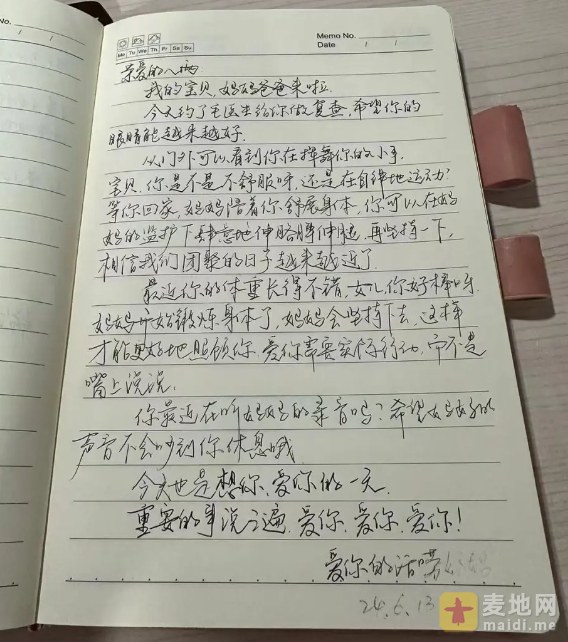 No.
/ /
Memo No.
Mo Tu We Th Fr Sa Su
Date / /
亲爱的八
我的宝贝,妈妈爸爸来啦.
今天约了毛医生给你做复查,希望你的
眼睛能越来越好.
从门外可以看到你在挥舞你的小手.
宝贝,你是不是不舒服呀,还是在自律地运动?
等你回家,妈妈陪着你舒展身体,你可以在妈
妈的监护下肆意地伸胳膊伸腿,再坚持一下,
相信我们团聚的日子越来越近了.
最近你的体重长得不错,女儿你好棒呀.
妈妈开始锻炼身体了,妈妈会坚持下去,这样
才能更好地照顾你,爱你需要实际行动,而不是
嘴上说说.
你最近在听妈妈的录音吗?希望妈妈的
声音不会吵到你休息哦
今天也是想你、爱你的一天.
重要的事说三遍,爱你,爱你,爱你!
爱你的话唠妈妈
24.6.13
麦地网
maidi.me